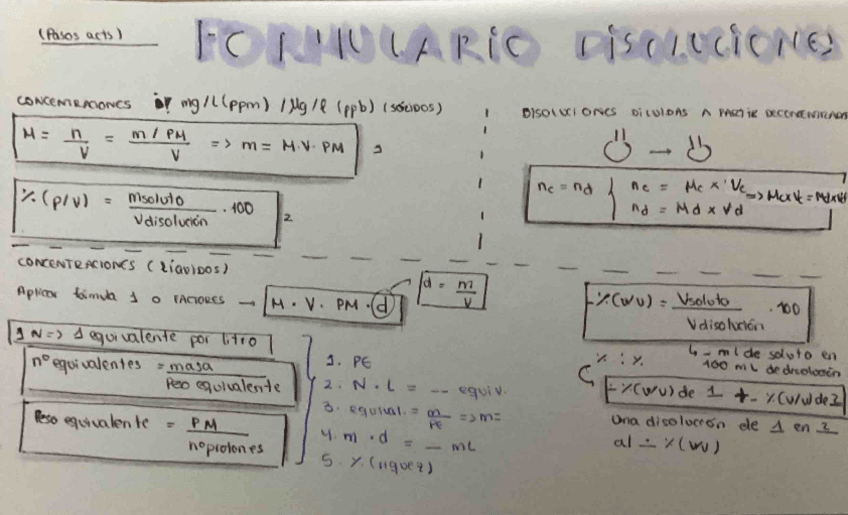 (Pasos acts)
FORMULARIO DISOLUCIONES
CONCENTRACIONES mg/L (ppm) / μg/l (ppb) (sólidos)
M = n / V = m / PM / V => m = M.V.PM 1
% (p/v) = msoluto / Vdisolución . 100 2
DISOLUCIONES DILUIDAS A PARTIR DE CONCENTRADA
nc = nd
nc = Mc x Vc => Mc x Vc = Md x Vd
nd = Md x Vd
CONCENTRACIONES (LÍQUIDOS)
Aplicar fórmula 1 o FACTORES → M . V . PM . d
d = m / V
1 N => 1 equivalente por litro
nº equivalentes = masa / Peso equivalente
Peso equivalente = PM / nº protones
1. PE
2. N . L = -- equiv.
3. equival. = m / PE => m=
4. m . d = _ mL
5. % (riqueza)
- % (v/v) = Vsoluto / Vdisolución . 100
↳ - ml de soluto en
100 mL de disolución
% : %
- % (v/v) de 1 + - % (v/v) de 2
Una disolución de 1 en 2
al ∸ % (v/v)